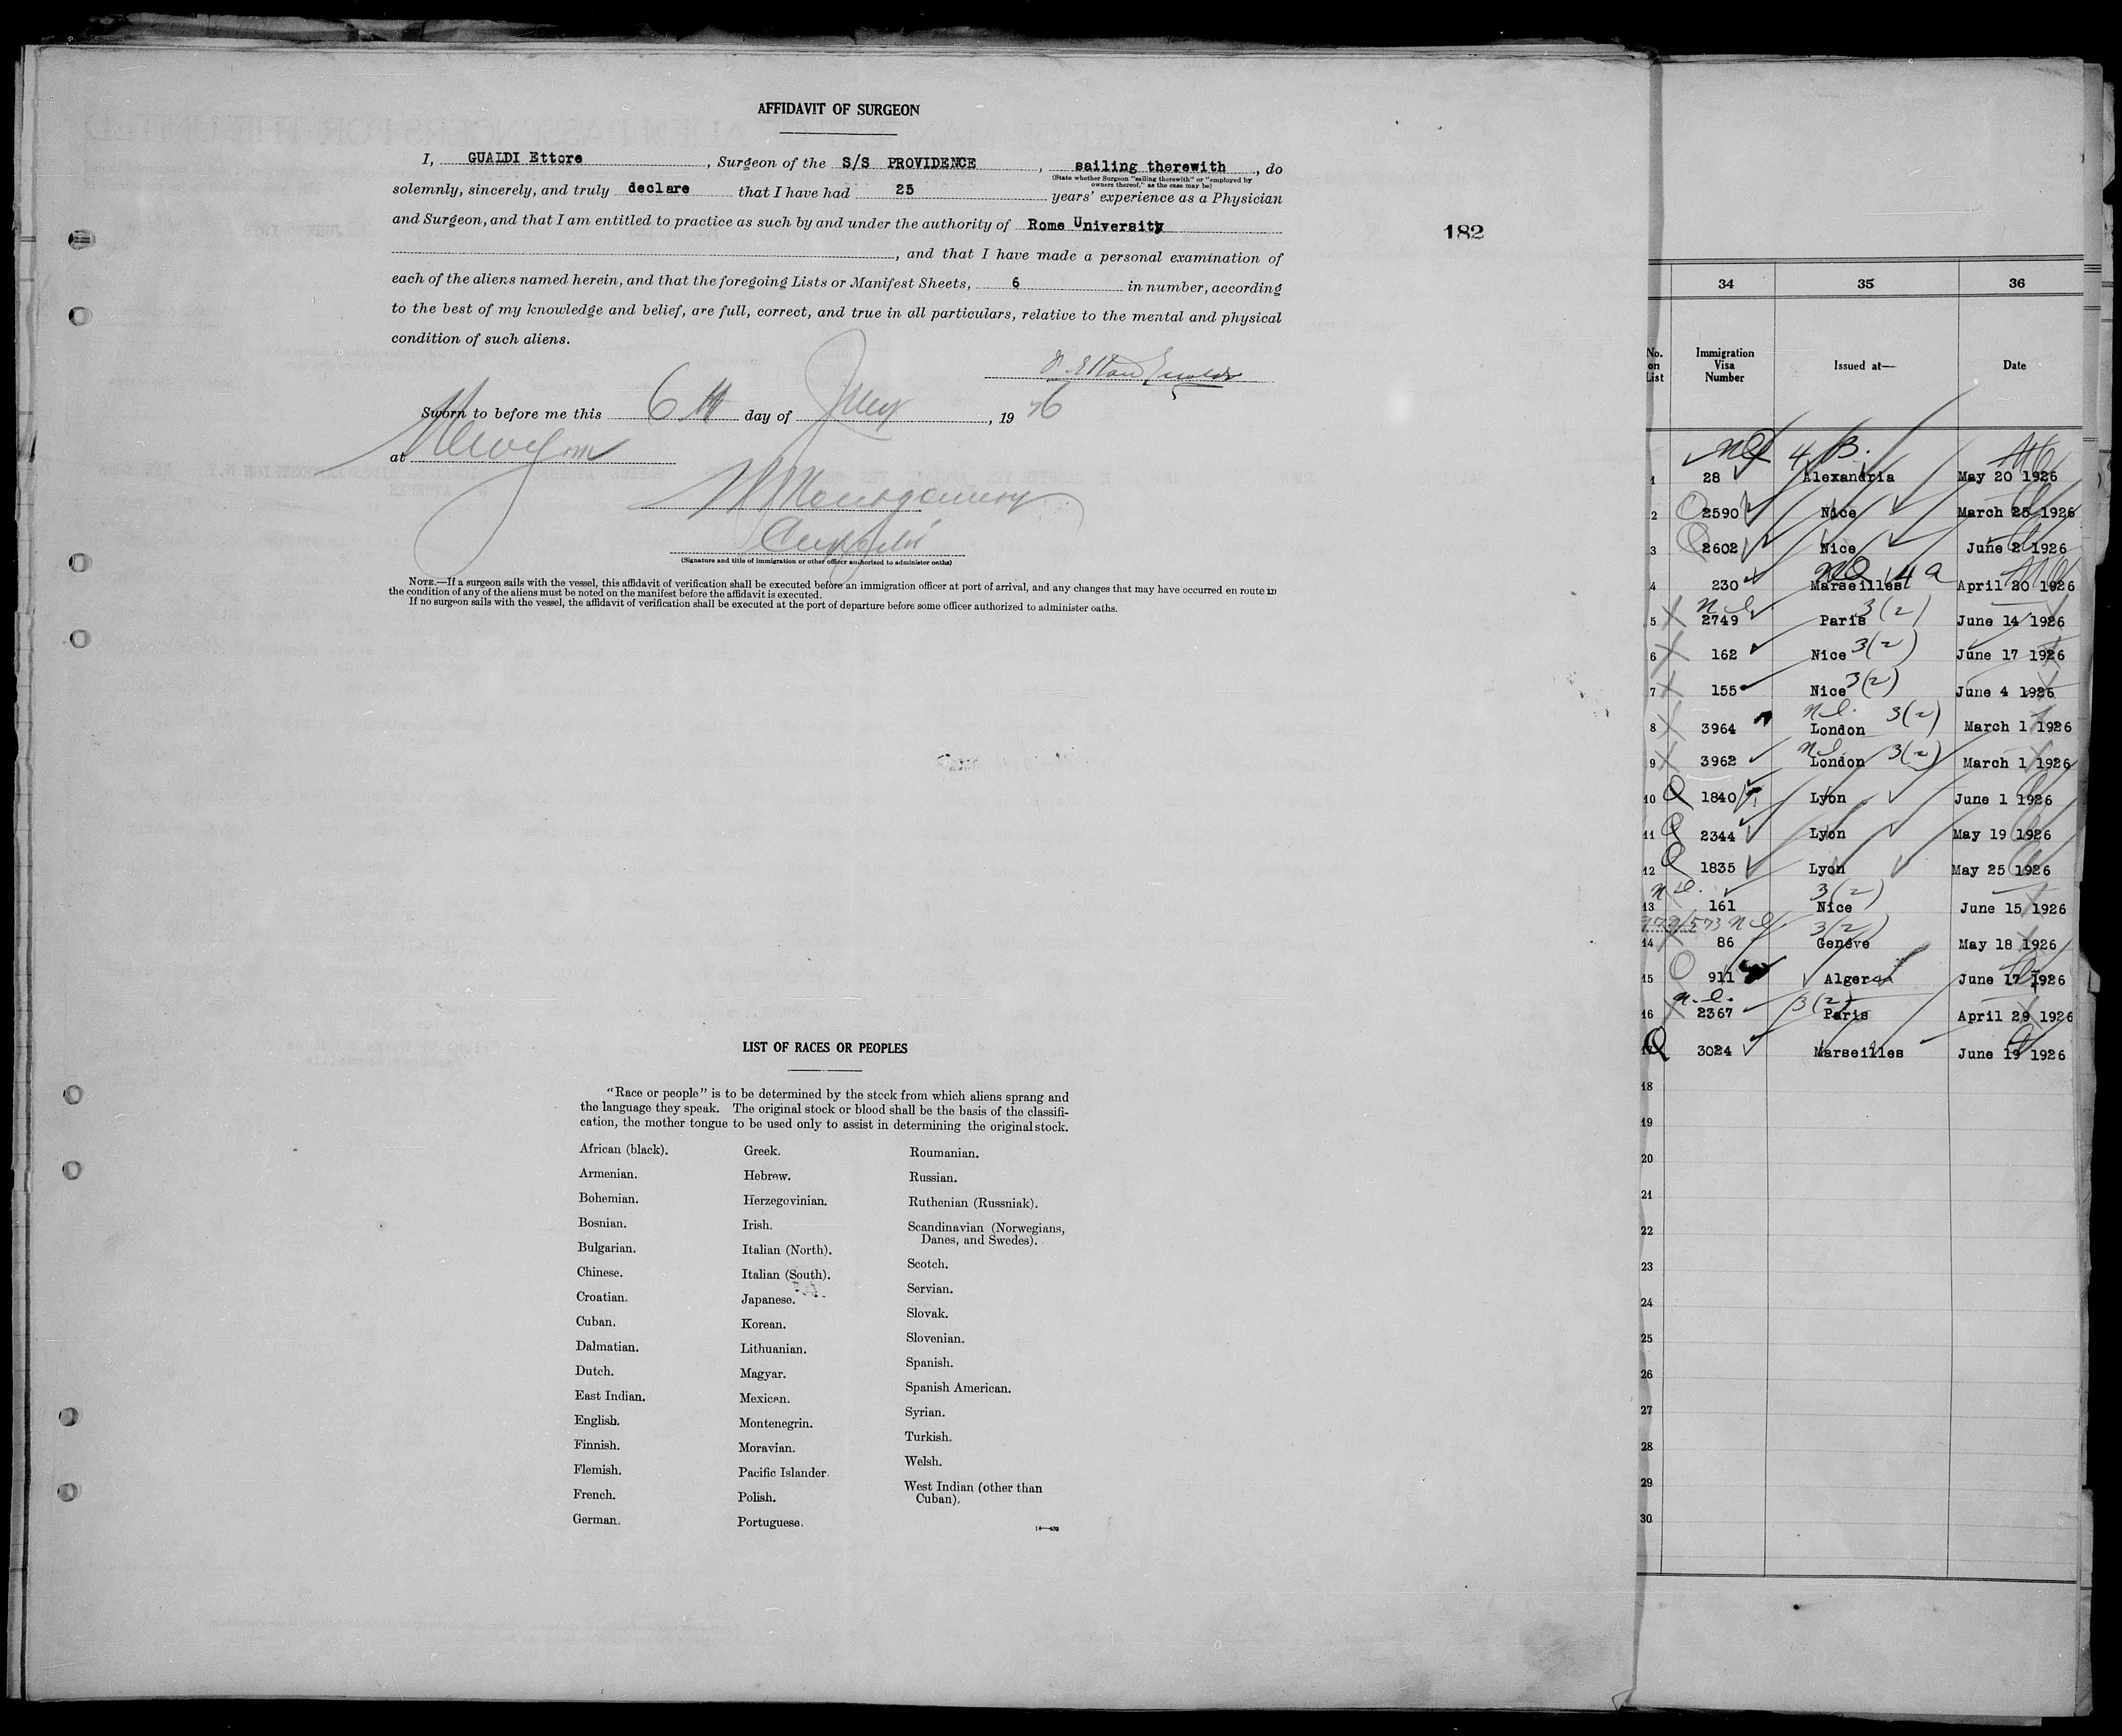 AFFIDAVIT OF SURGEON
I, GUALDI Ettore, Surgeon of the S/S PROVIDENCE, sailing therewith, do
(State whether Surgeon "sailing therewith" or "employed by
owners thereof," as the case may be)
solemnly, sincerely, and truly declare that I have had 25 years' experience as a Physician
and Surgeon, and that I am entitled to practice as such by and under the authority of Rome University
, and that I have made a personal examination of
each of the aliens named herein, and that the foregoing Lists or Manifest Sheets, 6 in number, according
to the best of my knowledge and belief, are full, correct, and true in all particulars, relative to the mental and physical
condition of such aliens.
Sworn to before me this 6th day of July, 1926
at
(Signature and title of immigration or other officer authorized to administer oaths)
NOTE.—If a surgeon sails with the vessel, this affidavit of verification shall be executed before an immigration officer at port of arrival, and any changes that may have occurred en route in
the condition of any of the aliens must be noted on the manifest before the affidavit is executed.
If no surgeon sails with the vessel, the affidavit of verification shall be executed at the port of departure before some officer authorized to administer oaths.
LIST OF RACES OR PEOPLES
"Race or people" is to be determined by the stock from which aliens sprang and
the language they speak. The original stock or blood shall be the basis of the classifi-
cation, the mother tongue to be used only to assist in determining the original stock.
African (black).
Armenian.
Bohemian.
Bosnian.
Bulgarian.
Chinese.
Croatian.
Cuban.
Dalmatian.
Dutch.
East Indian.
English.
Finnish.
Flemish.
French.
German.
Greek.
Hebrew.
Herzegovinian.
Irish.
Italian (North).
Italian (South).
Japanese.
Korean.
Lithuanian.
Magyar.
Mexican.
Montenegrin.
Moravian.
Pacific Islander.
Polish.
Portuguese.
Roumanian.
Russian.
Ruthenian (Russniak).
Scandinavian (Norwegians,
Danes, and Swedes).
Scotch.
Servian.
Slovak.
Slovenian.
Spanish.
Spanish American.
Syrian.
Turkish.
Welsh.
West Indian (other than
Cuban).
182
34 35 36
No. on List Immigration Visa Number Issued at— Date
4 B.
1 28 Alexandria May 20 1926
2 2590 Nice March 25 1926
3 2602 Nice June 2 1926
4 a
4 230 Marseilles April 20 1926
5 2749 Paris 3(2) June 14 1926
6 162 Nice 3(2) June 17 1926
7 155 Nice 3(2) June 4 1926
8 3964 London 3(2) March 1 1926
9 3962 London 3(2) March 1 1926
10 1840 Lyon June 1 1926
11 2344 Lyon May 19 1926
12 1835 Lyon May 25 1926
3(2)
13 161 Nice June 15 1926
3(2)
14 86 Genéve May 18 1926
15 911 Alger June 17 1926
3(2)
16 2367 Paris April 29 1926
17 3024 Marseilles June 19 1926
18
19
20
21
22
23
24
25
26
27
28
29
30